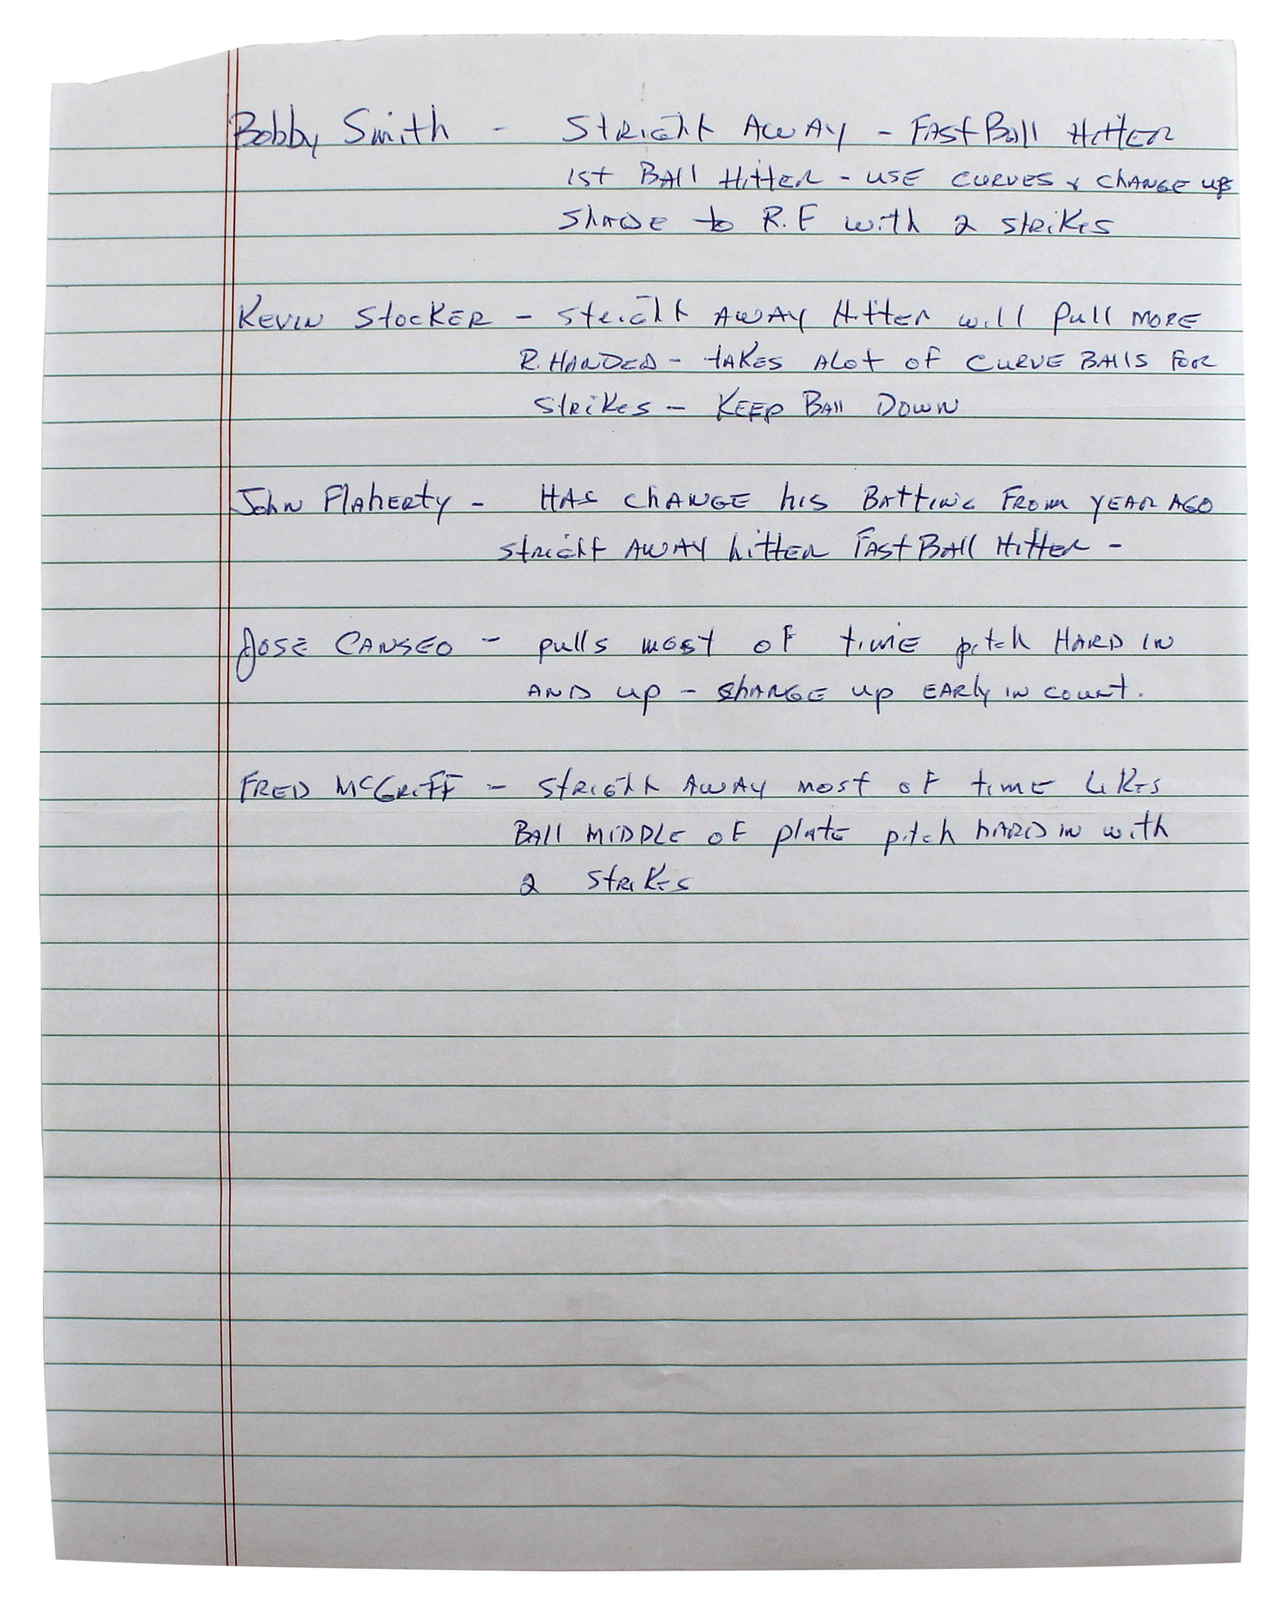 Bobby Smith - Stright Away - Fast Ball Hitter
1st Ball Hitter - use curves & change up
Shade to R.F with 2 strikes
Kevin Stocker - Stright Away Hitter will pull more
R. Handed - takes alot of curve balls for
strikes - Keep Ball Down
John Flaherty - Has change his Batting from year ago
stright away hitter Fast Ball Hitter -
Jose Canseo - pulls most of time pitch Hard in
and up - change up early in count.
Fred McGriff - stright away most of time likes
Ball middle of plate pitch hard in with
2 strikes